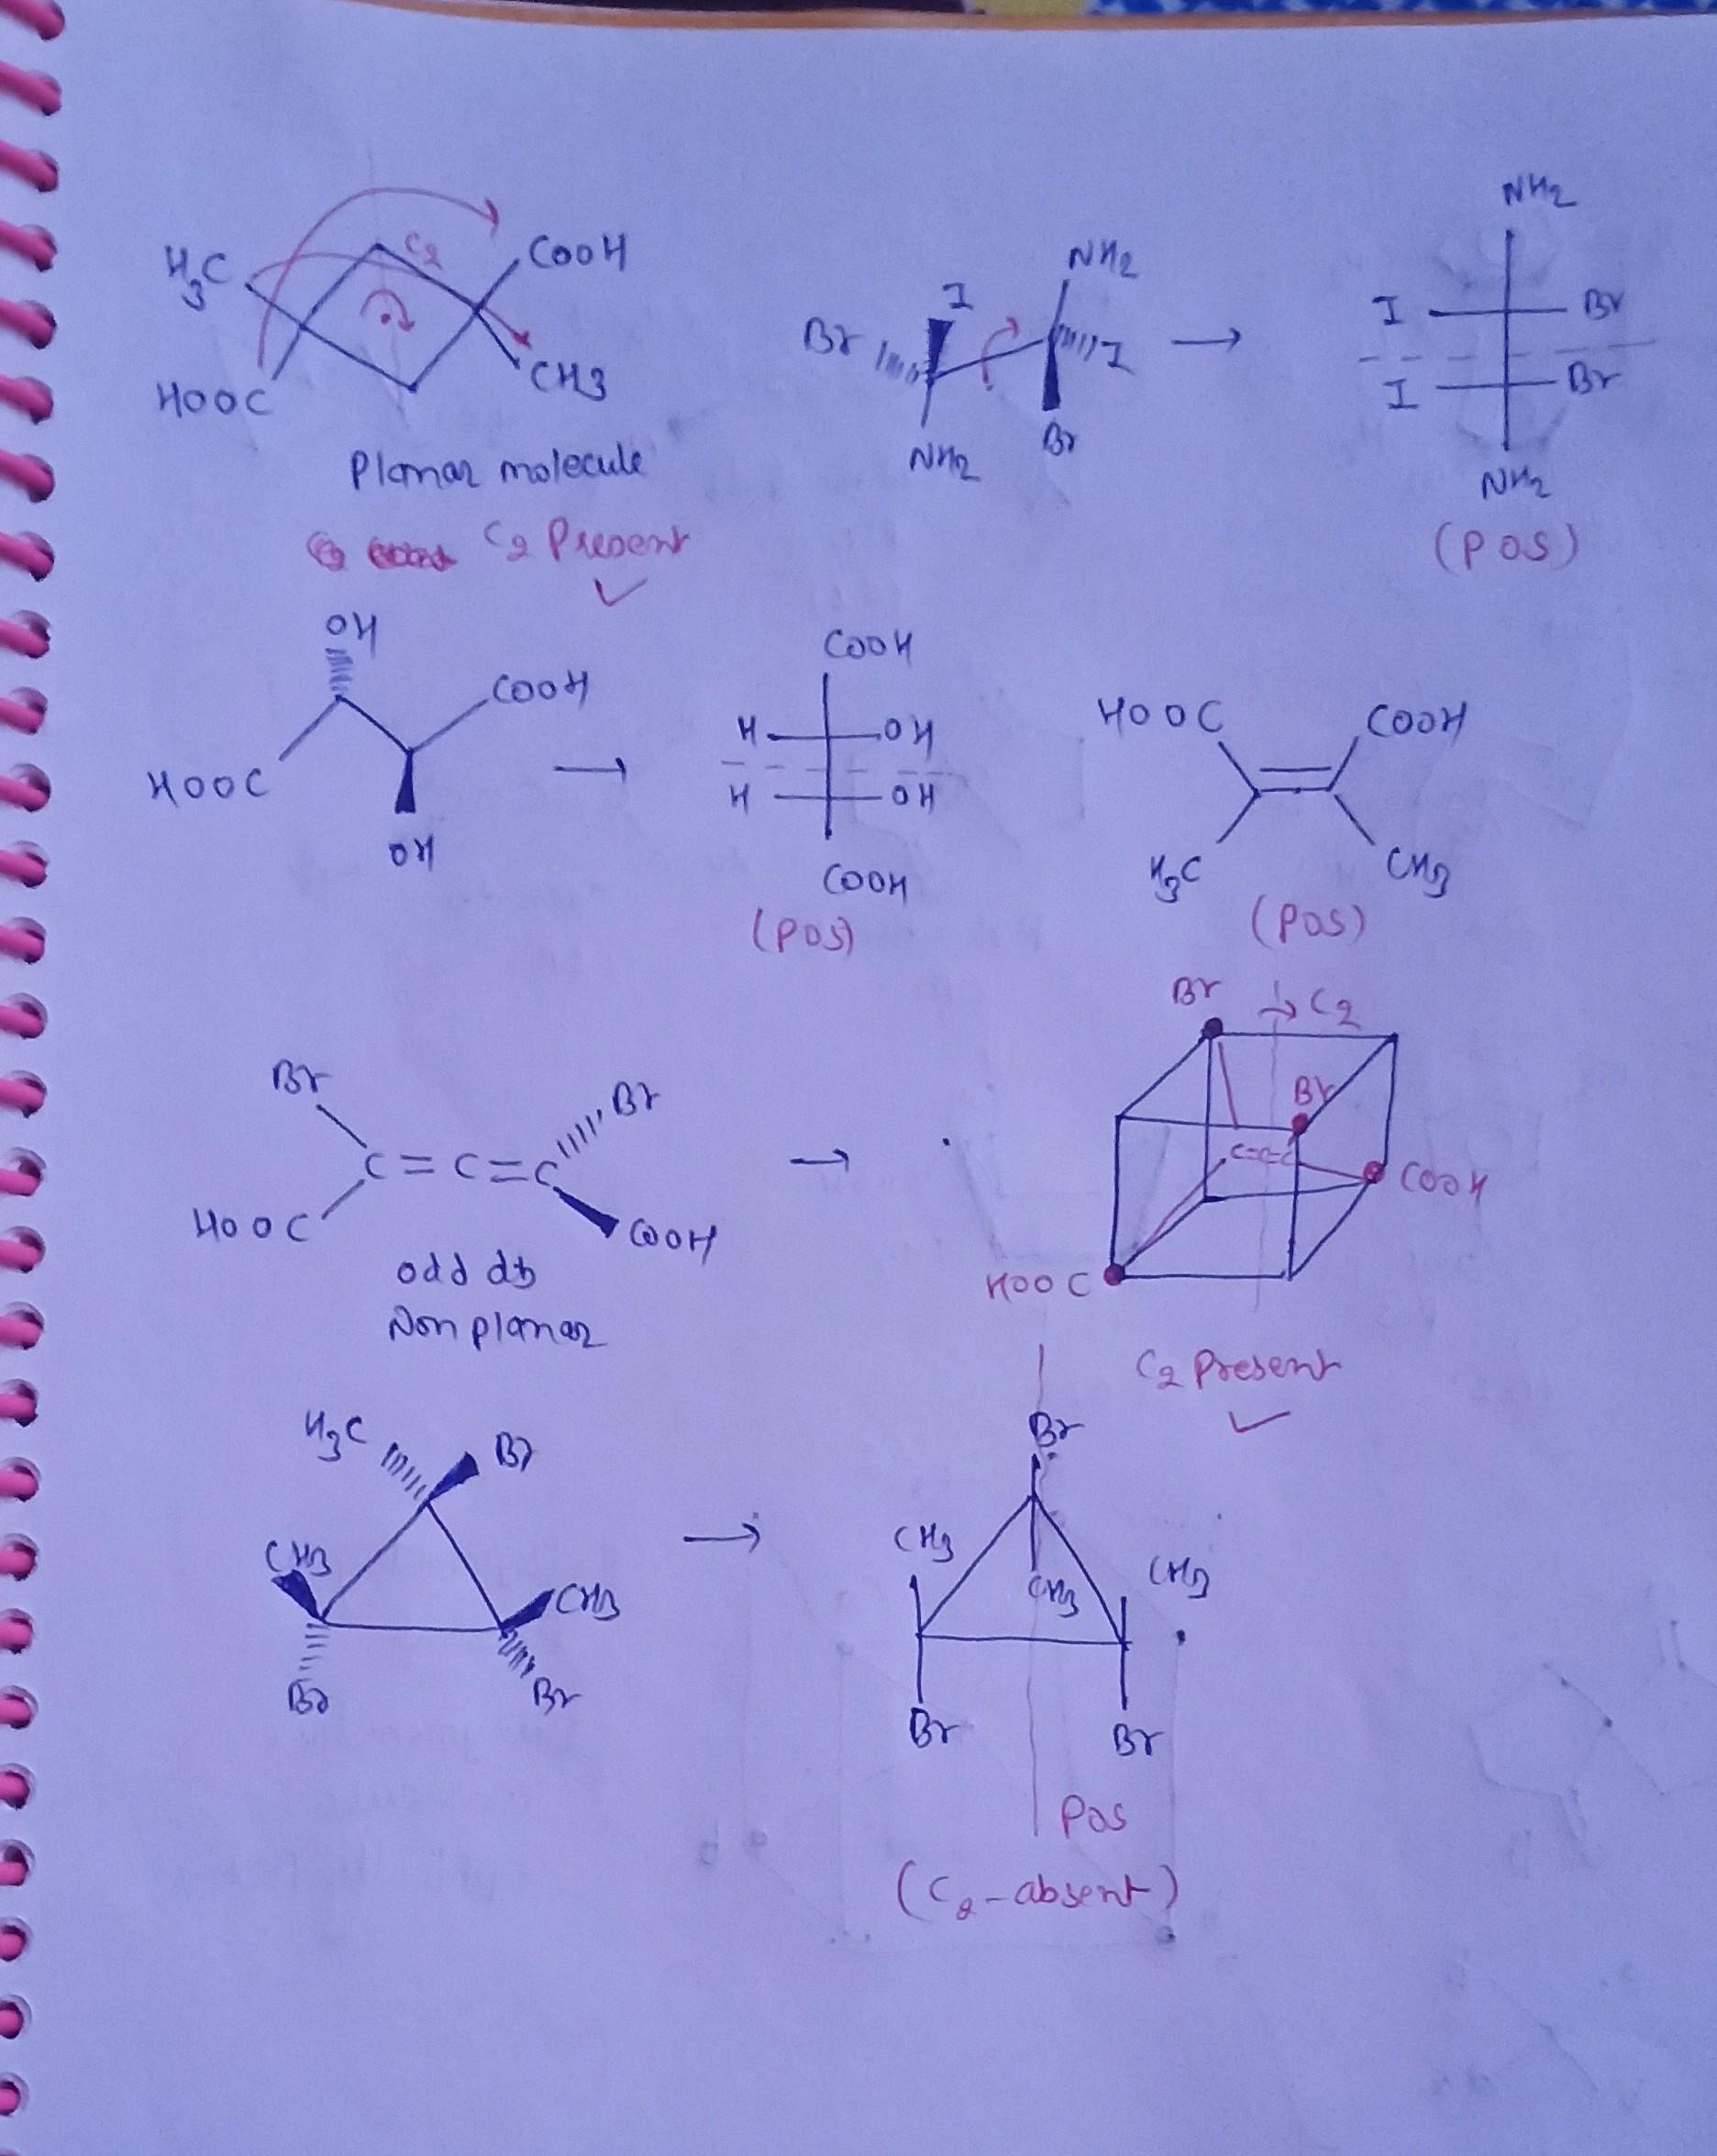 H3C C2 COOH
HOOC CH3
Planar molecule
C2 Present
Br I NH2 I
NH2 Br
NH2
I Br
I Br
NH2
(POS)
OH
COOH
HOOC
OH
COOH
H OH
H OH
COOH
(POS)
HOOC COOH
H3C CH3
(POS)
Br Br
C=C=C
HOOC COOH
odd db
Non planar
Br C2
Br
C=C=C
COOH
HOOC
C2 Present
H3C Br
CH3 CH3
Br Br
Br
CH3 CH3
CH3
Br Br
POS
(C2-absent)